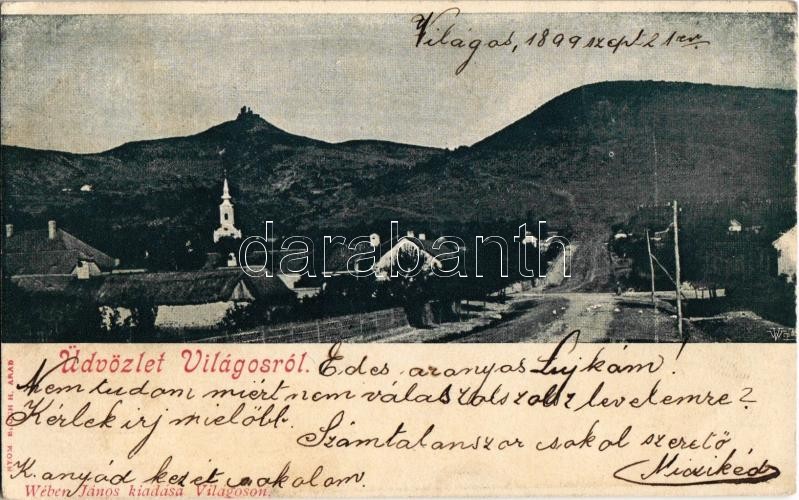 Világos, 1899 szept 21én
darabanth
Üdvözlet Világosról.
Edes aranyos Lujkám!
Nem tudom miért nem válaszolszolsz levelemre?
Kérlek irj mielőbb.
Számtalanszor csokol szerető
K. anyád kezét csokolom.
Wében János kiadása Világoson.
H. ARAD